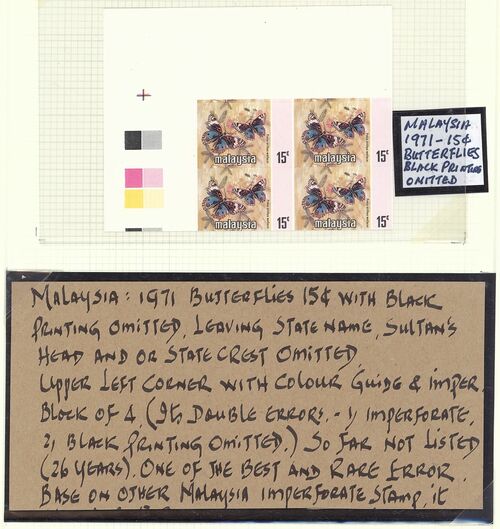 malaysia 15¢ malaysia 15¢
malaysia 15¢ malaysia 15¢
MALAYSIA
1971-15¢
BUTTERFLIES
BLACK PRINTING
OMITTED
MALAYSIA: 1971 BUTTERFLIES 15¢ WITH BLACK
PRINTING OMITTED, LEAVING STATE NAME, SULTAN'S
HEAD AND OR STATE CREST OMITTED
UPPER LEFT CORNER WITH COLOUR GUIDE & IMPER
BLOCK OF 4. (ITS DOUBLE ERRORS. - 1) IMPERFORATE.
2) BLACK PRINTING OMITTED.) SO FAR NOT LISTED
(26 YEARS). ONE OF THE BEST AND RARE ERROR.
BASE ON OTHER MALAYSIA IMPERFORATE STAMP, IT